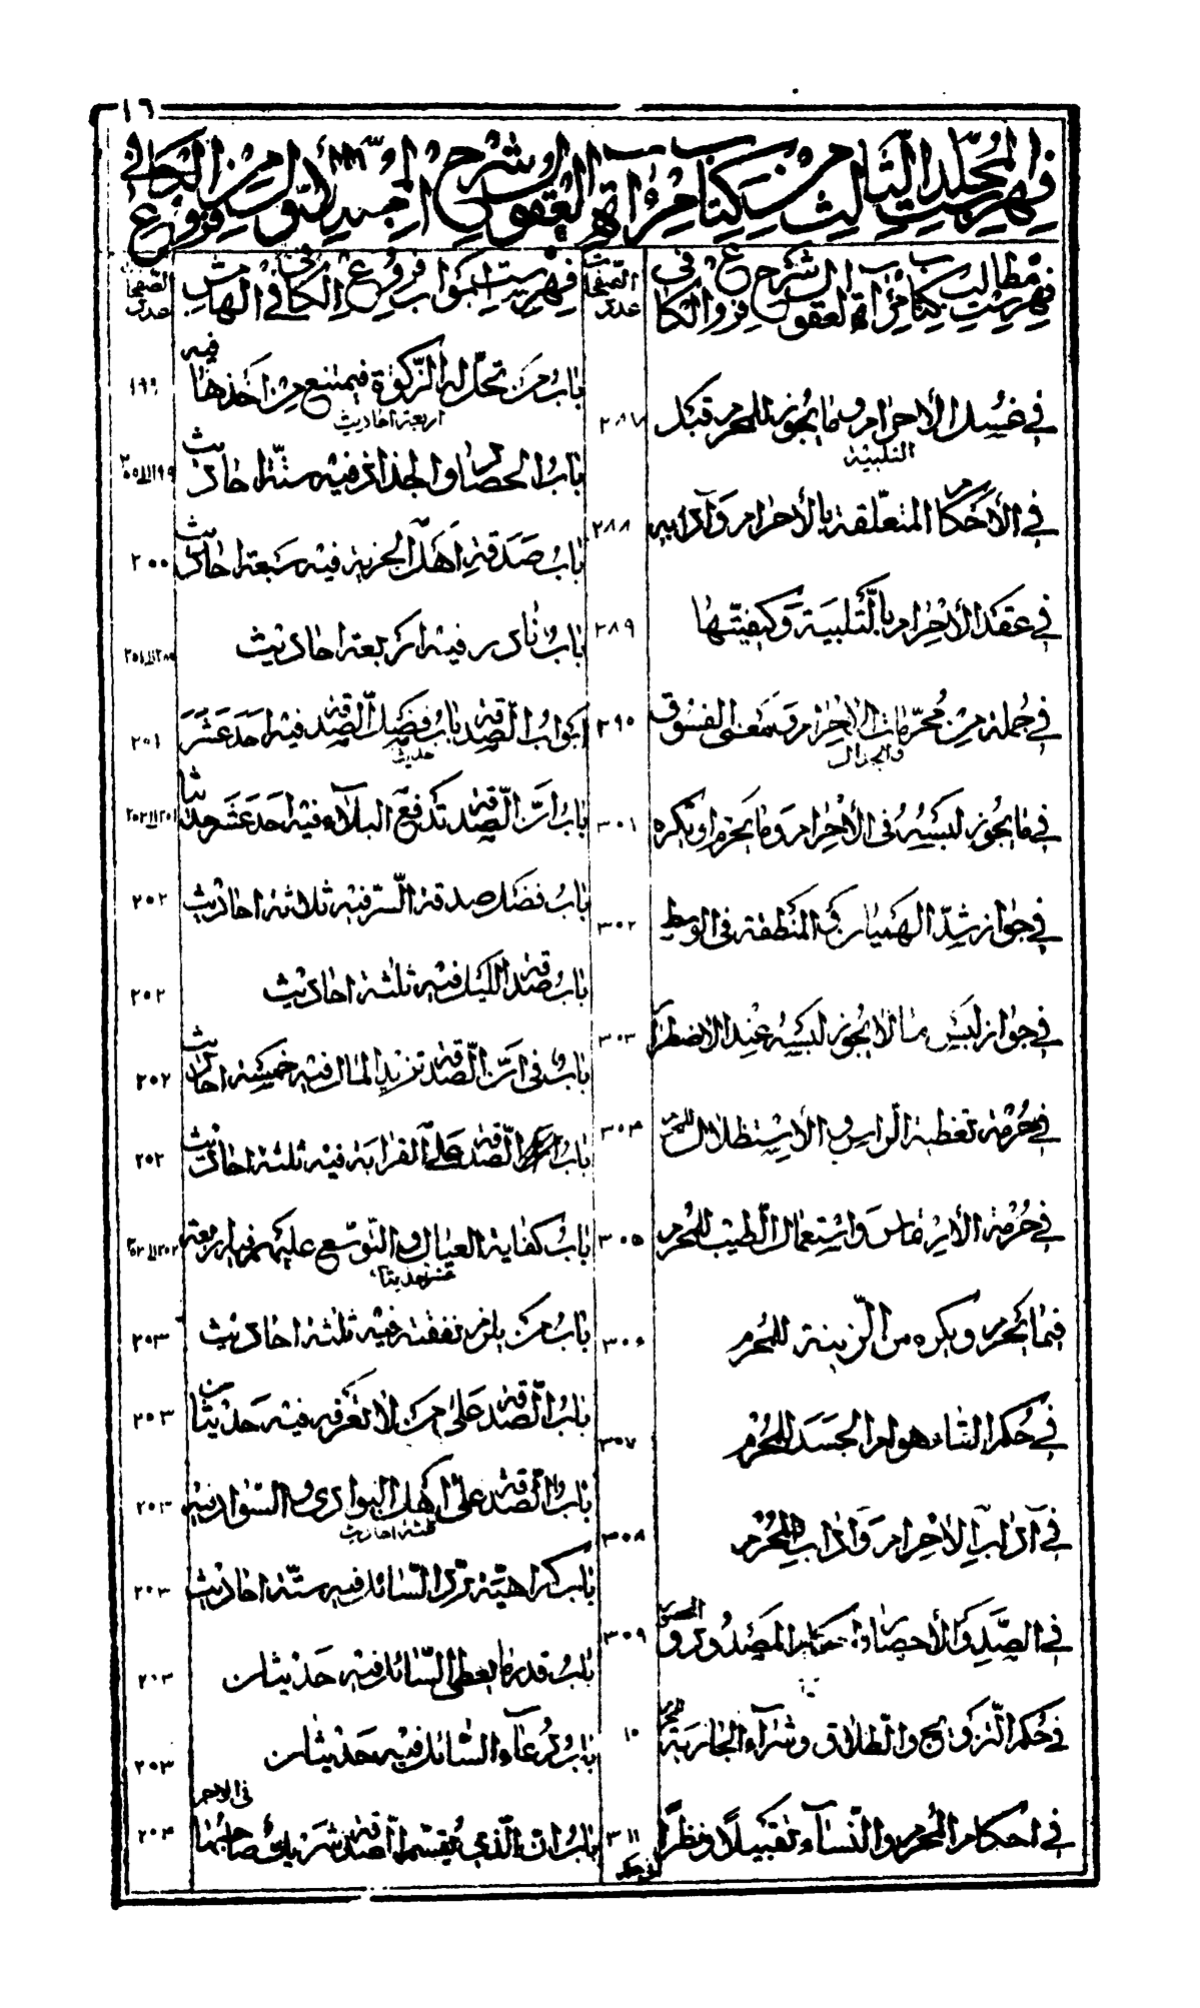 ١٦
فهرست المجلد الثالث من كتاب مرآة العقول شرح المجلد الأول من فروع الكافي
فهرست مطالب كتاب مرآة العقول شرح فروع الكافي
عدد الصفحات
في غسل الأحرام وما يجوز للمحرم قبل التلبية
٢٨٧
في الأحكام المتعلقة بالأحرام وآدابه
٢٨٨
في عقد الأحرام بالتلبية وكيفيتها
٢٨٩
في جملة من محرمات الاحرام ومعنى الفسوق والجدال
٢٩٠
في ما يجوز لبسه في الأحرام وما يحرم او يكره
٣٠١
في جواز شد الهميان في المنطقة في الوسط
٣٠٢
في جواز لبس ما لا يجوز لبسه عند الاضطرار
٣٠٣
في حرمة تغطية الراس والأستظلال للمحرم
٣٠٤
في حرمة الأرتماس واستعمال الطيب للمحرم
٣٠٥
فيما يحرم ويكره من الزينة للمحرم
٣٠٦
في حكم القاء هوام الجسد للمحرم
٣٠٧
في آداب الأحرام وآداب المحرم
٣٠٨
في الصد والأحصار واحكام المصدود و
٣٠٩
في حكم التزويج والطلاق وشراء الجارية للمحرم
١٠
في احكام المحرم والنساء تقبيلاً ونظراً
٣١١
فهرست ابواب فروع الكافي في الهامش
عدد الصفحات
باب من تحل له الزكوة فيمتنع من اخذها فيه اربعة احاديث
١٩٩
باب الحصاد والجذاذ فيه ستة احاديث
١٩٩ الى ٢٠٠
باب صدقة اهل الجزية فيه سبعة احاديث
٢٠٠
باب نادر فيه اربعة احاديث
ابواب الصدقة باب فضل الصدقة فيه احد عشر حديث
٢٠١
باب ان الصدقة تدفع البلاء فيه احد عشر حديثا
٢٠١ الى ٢٠٢
باب فضل صدقة السر فيه ثلاثة احاديث
٢٠٢
باب صدقة الليل فيه ثلثة احاديث
٢٠٢
باب في ان الصدقة تزيد المال فيه خمسة احاديث
٢٠٢
باب الصدقة على القرابة فيه ثلثة احاديث
٢٠٢
باب كفاية العيال والتوسع عليهم فيه اربعة عشر حديثا
٢٠٢ الى ٢٠٣
باب من يلزم نفقته فيه ثلثة احاديث
٢٠٣
باب الصدقة على من لا تعرفه فيه حديثان
٢٠٣
باب الصدقة على اهل البوادي والسواد فيه ثلثة احاديث
٢٠٣
باب كراهية رد السائل فيه ستة احاديث
٢٠٣
باب قدر ما يعطى السائل فيه حديثان
٢٠٣
باب دعاء السائل فيه حديثان
٢٠٣
باب ان الذي يقسم الصدقة شريك صاحبها في الاجر
٢٠٤